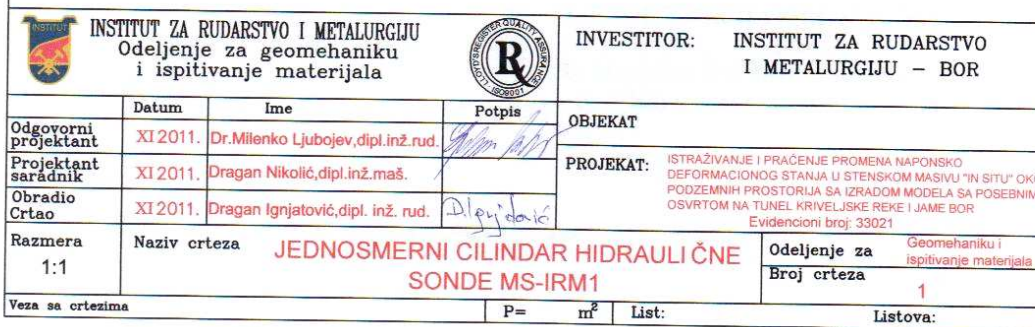 INSTITUT
INSTITUT ZA RUDARSTVO I METALURGIJU
Odeljenje za geomehaniku
i ispitivanje materijala
LLOYD'S REGISTER QUALITY ASSURANCE
R
ISO9001
INVESTITOR: INSTITUT ZA RUDARSTVO
I METALURGIJU – BOR
Datum Ime Potpis
Odgovorni projektant XI 2011. Dr.Milenko Ljubojev,dipl.inž.rud.
Projektant saradnik XI 2011. Dragan Nikolić,dipl.inž.maš.
Obradio Crtao XI 2011. Dragan Ignjatović,dipl. inž. rud.
OBJEKAT
PROJEKAT: ISTRAŽIVANJE I PRAĆENJE PROMENA NAPONSKO
DEFORMACIONOG STANJA U STENSKOM MASIVU "IN SITU" OKO
PODZEMNIH PROSTORIJA SA IZRADOM MODELA SA POSEBNIM
OSVRTOM NA TUNEL KRIVELJSKE REKE I JAME BOR
Evidencioni broj: 33021
Razmera
1:1
Naziv crteza JEDNOSMERNI CILINDAR HIDRAULI ČNE
SONDE MS-IRM1
Odeljenje za Geomehaniku i
ispitivanje materijala
Broj crteza
1
Veza sa crtezima P= m² List: Listova: